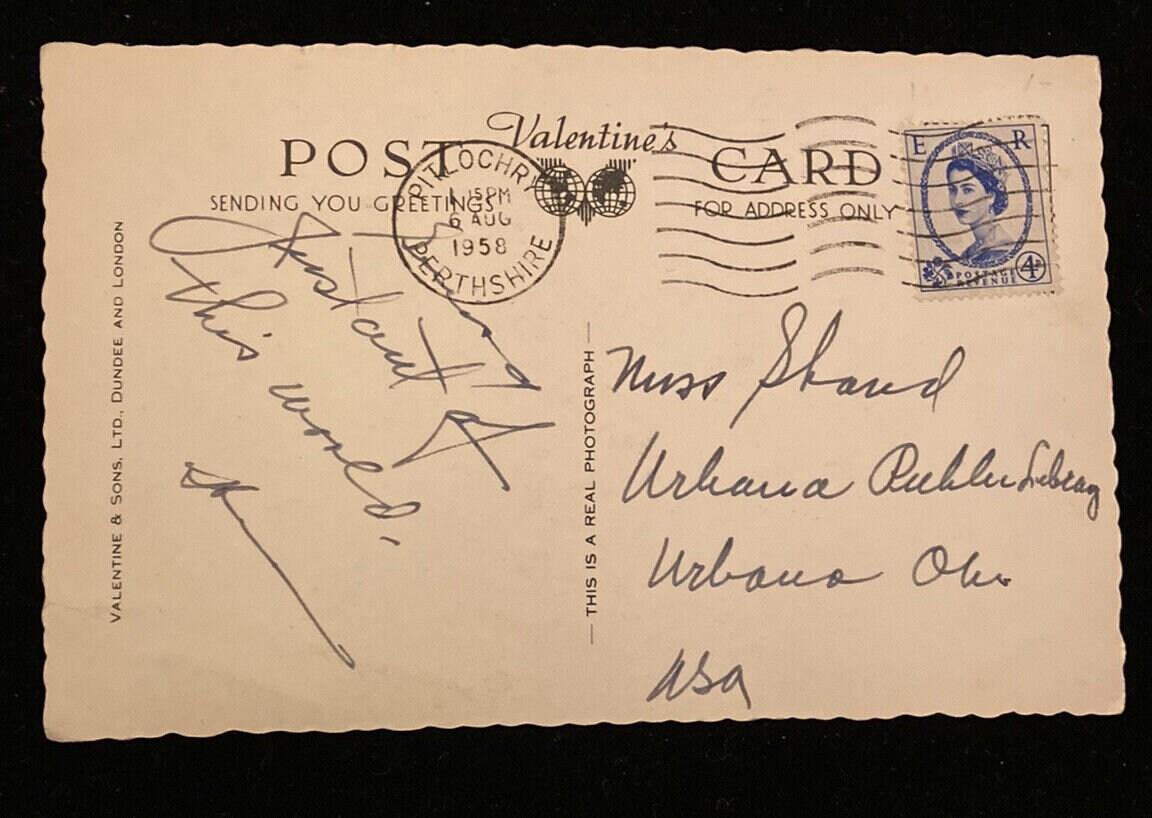 Valentine's
POST CARD
SENDING YOU GREETINGS
FOR ADDRESS ONLY
PITLOCHRY
1 15PM
6 AUG
1958
PERTHSHIRE
E R
POSTAGE
REVENUE
4D
VALENTINE & SONS, LTD., DUNDEE AND LONDON
THIS IS A REAL PHOTOGRAPH
just out of
this world.
Miss Shand
Urbana Public Library
Urbana Ohio
USA